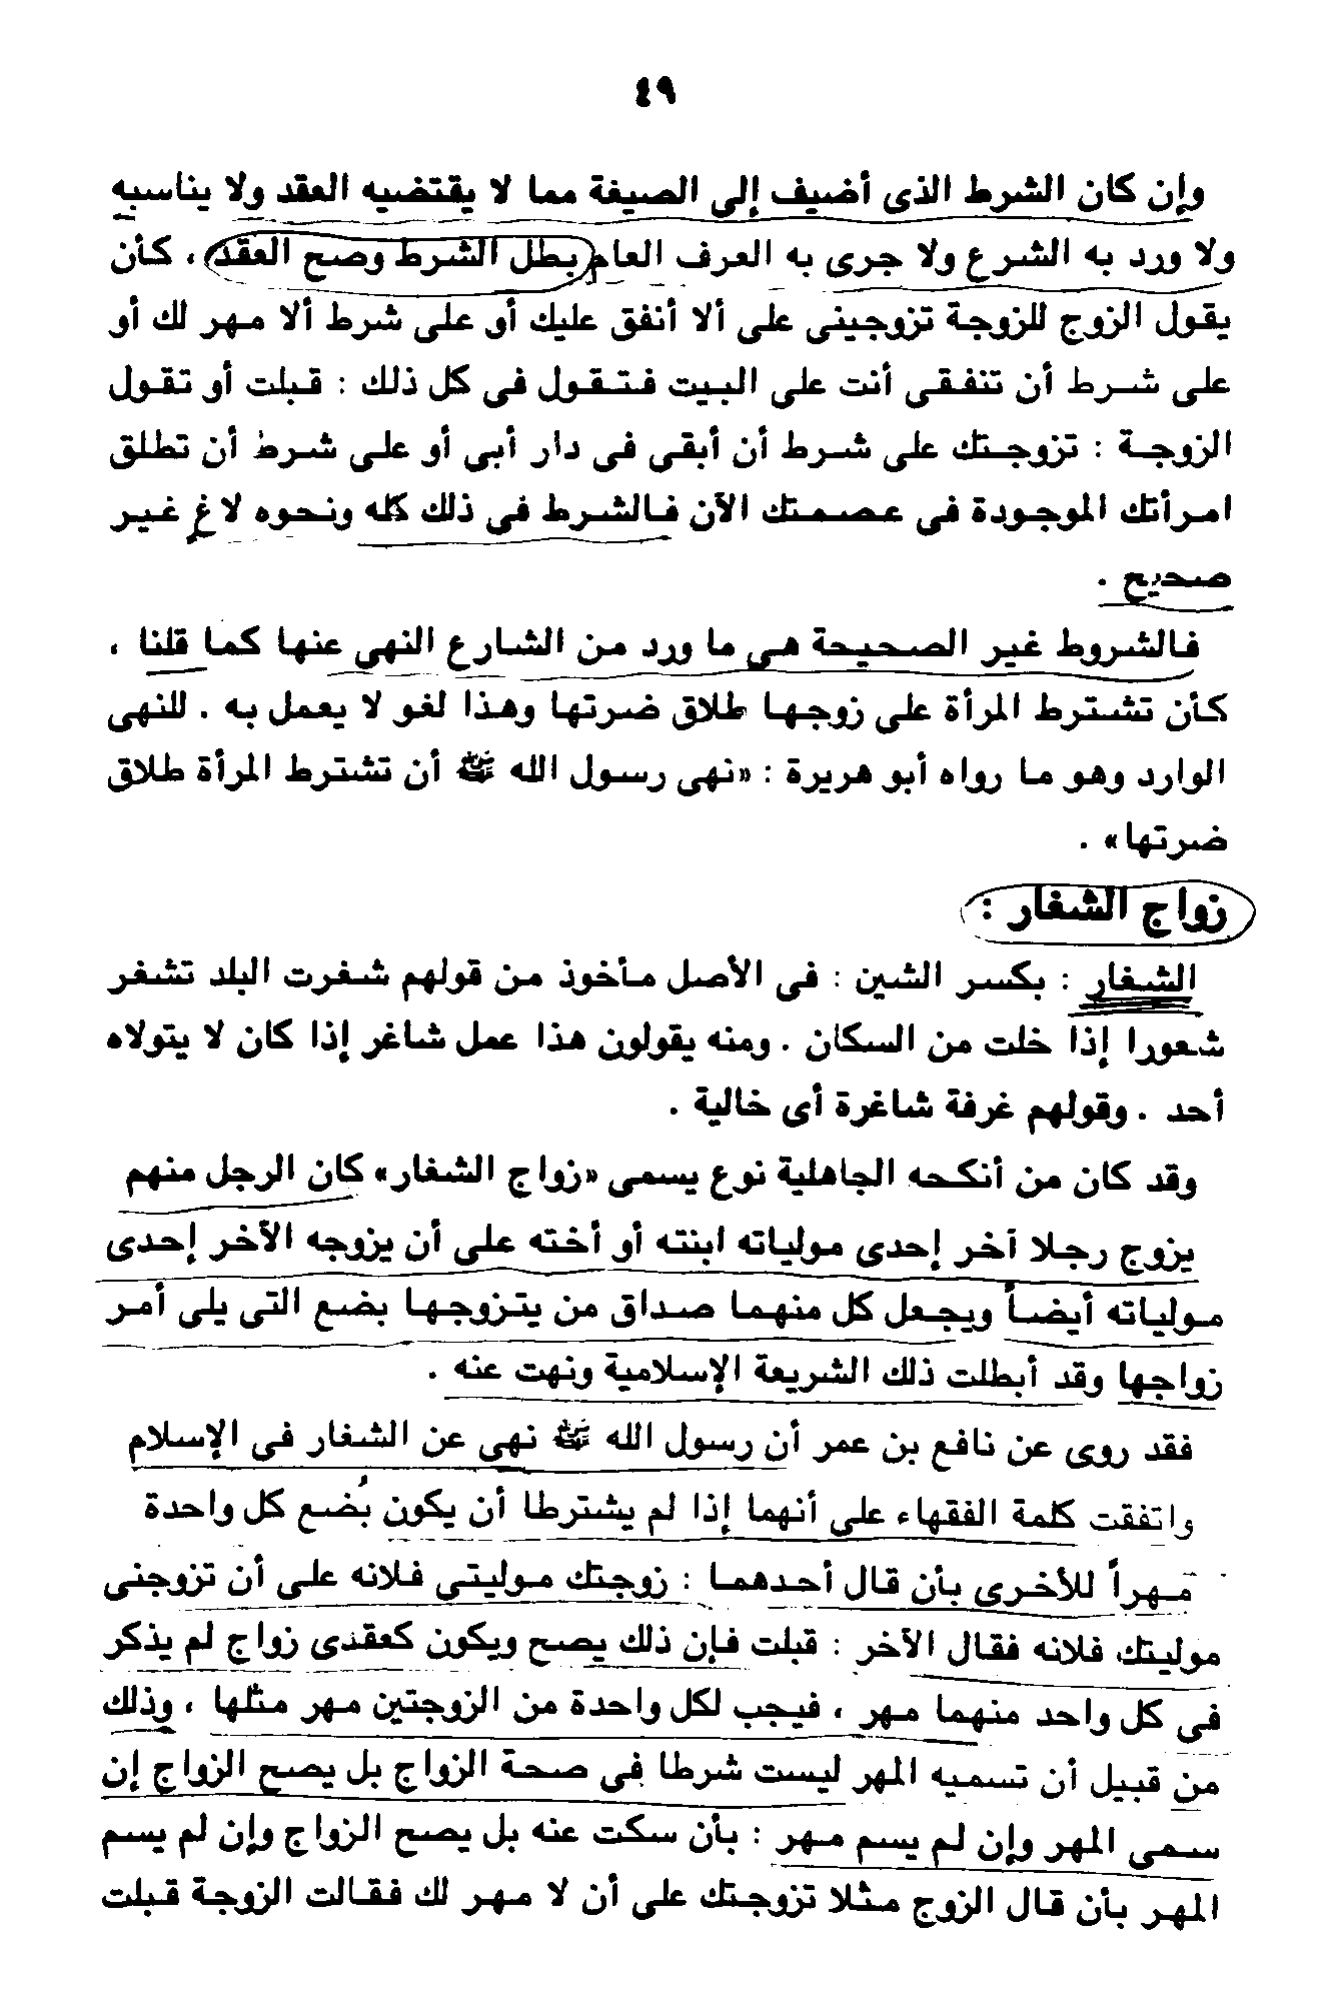 ٤٩
وإن كان الشرط الذى أضيف إلى الصيغة مما لا يقتضيه العقد ولا يناسبه
ولا ورد به الشرع ولا جرى به العرف العام بطل الشرط وصح العقد ، كأن
يقول الزوج للزوجة تزوجينى على ألا أنفق عليك أو على شرط ألا مهر لك أو
على شرط أن تنفقى أنت على البيت فتقول فى كل ذلك : قبلت أو تقول
الزوجة : تزوجتك على شرط أن أبقى فى دار أبى أو على شرط أن تطلق
امرأتك الموجودة فى عصمتك الآن فالشرط فى ذلك كله ونحوه لاغ غير
صحيح .
فالشروط غير الصحيحة هى ما ورد من الشارع النهى عنها كما قلنا ،
كأن تشترط المرأة على زوجها طلاق ضرتها وهذا لغو لا يعمل به . للنهى
الوارد وهو ما رواه أبو هريرة : «نهى رسول الله ﷺ أن تشترط المرأة طلاق
ضرتها» .
زواج الشغار :
الشغار : بكسر الشين : فى الأصل مأخوذ من قولهم شغرت البلد تشغر
شعورا إذا خلت من السكان . ومنه يقولون هذا عمل شاغر إذا كان لا يتولاه
أحد . وقولهم غرفة شاغرة أى خالية .
وقد كان من أنكحه الجاهلية نوع يسمى «زواج الشغار» كان الرجل منهم
يزوج رجلا آخر إحدى مولياته ابنته أو أخته على أن يزوجه الآخر إحدى
مولياته أيضاً ويجعل كل منهما صداق من يتزوجها بضع التى يلى أمر
زواجها وقد أبطلت ذلك الشريعة الإسلامية ونهت عنه .
فقد روى عن نافع بن عمر أن رسول الله ﷺ نهى عن الشغار فى الإسلام
واتفقت كلمة الفقهاء على أنهما إذا لم يشترطا أن يكون بُضع كل واحدة
مهراً للأخرى بأن قال أحدهما : زوجتك موليتى فلانه على أن تزوجنى
موليتك فلانه فقال الآخر : قبلت فإن ذلك يصح ويكون كعقدى زواج لم يذكر
فى كل واحد منهما مهر ، فيجب لكل واحدة من الزوجتين مهر مثلها ، وذلك
من قبيل أن تسميه المهر ليست شرطا فى صحة الزواج بل يصح الزواج إن
سمى المهر وإن لم يسم مهر : بأن سكت عنه بل يصح الزواج وإن لم يسم
المهر بأن قال الزوج مثلا تزوجتك على أن لا مهر لك فقالت الزوجة قبلت